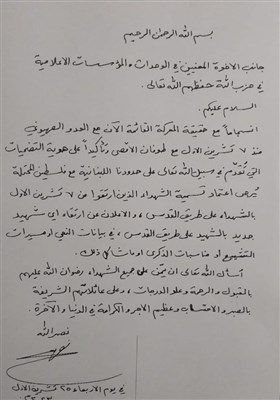 بسم الله الرحمن الرحيم
جانب الاخوة المعنيين في الوحدات والمؤسسات الاعلامية
في حزب الله حفظهم الله تعالى
السلام عليكم:
انسجاماً مع حقيقة المعركة القائمة الآن مع العدو الصهيوني
منذ ٧ تشرين الاول مع طوفان الاقصى وتأكيداً على هوية التضحيات
التي تُقدَّم في سبيل الله تعالى على حدودنا اللبنانية مع فلسطين المحتلة
يُرجى اعتماد تسمية الشهداء الذين ارتقوا من ٧ تشرين الاول
بالشهداء على طريق القدس، والاعلان عن ارتقاء اي شهيد
جديد بالشهيد على طريق القدس، في بيانات النعي او مسيرات
التشييع او مناسبات الذكرى او ما شاكل ذلك.
أسأل الله تعالى ان يمنّ على جميع الشهداء رضوان الله عليهم
بالقبول والرحمة وعلو الدرجات، وعلى عائلاتهم الشريفة
بالصبر والاحتساب وعظيم الاجر والكرامة في الدنيا والآخرة.
نصر الله
في يوم الاربعاء ٢٥ تشرين الاول
٢٠٢٣